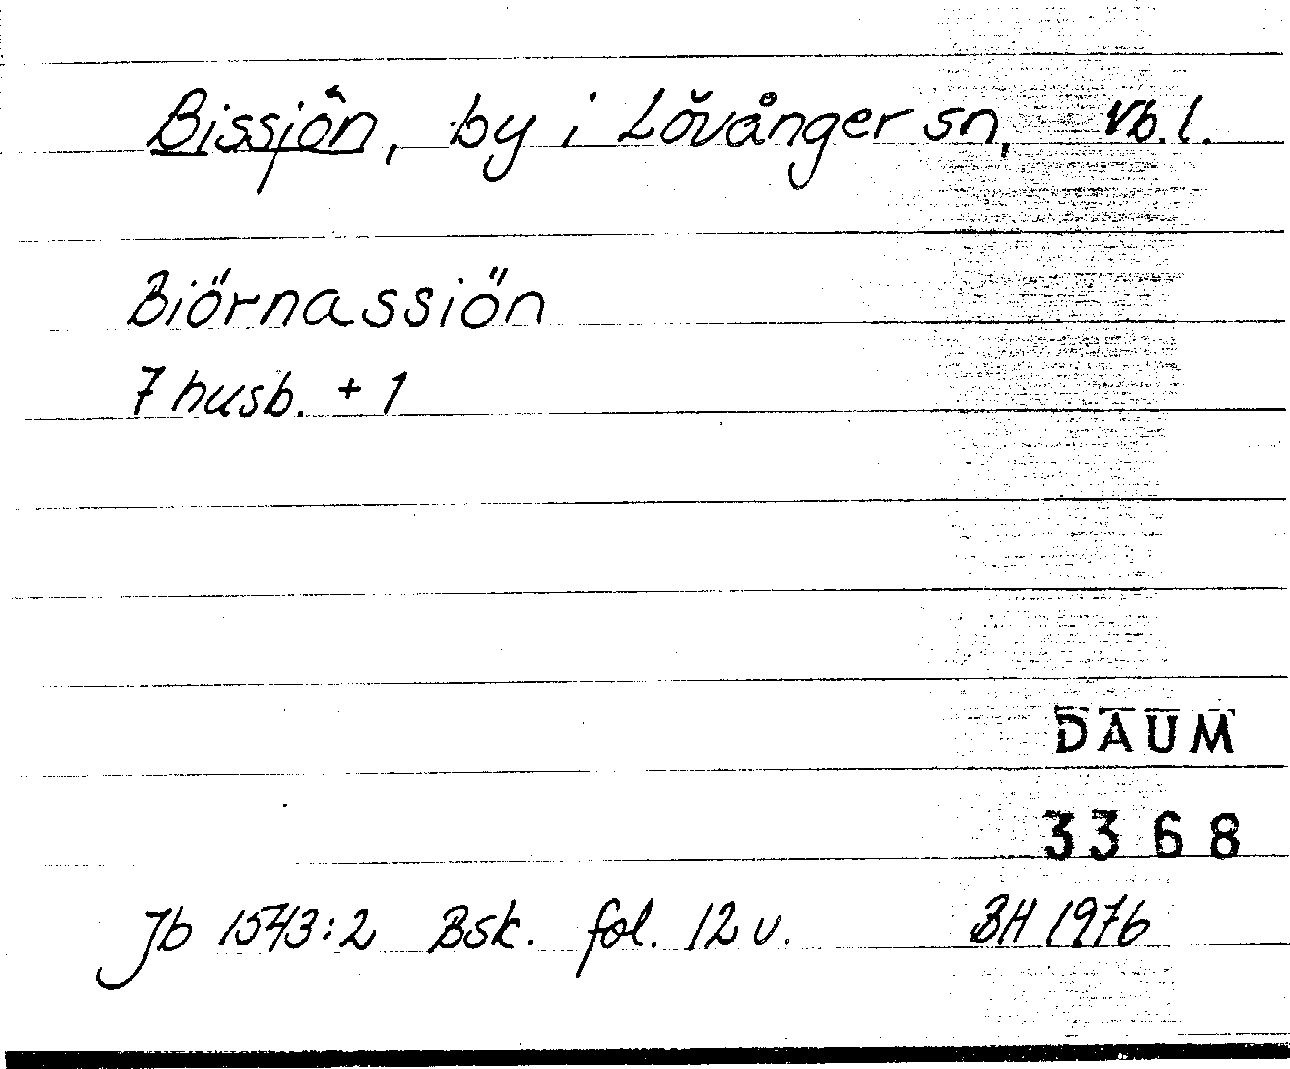 Bissjön, by i Lövånger sn, Vb.l.
Biörnassiön
7 husb. + 1
DAUM
3368
Jb 1543:2 Bsk. fol. 12 v. BH 1976